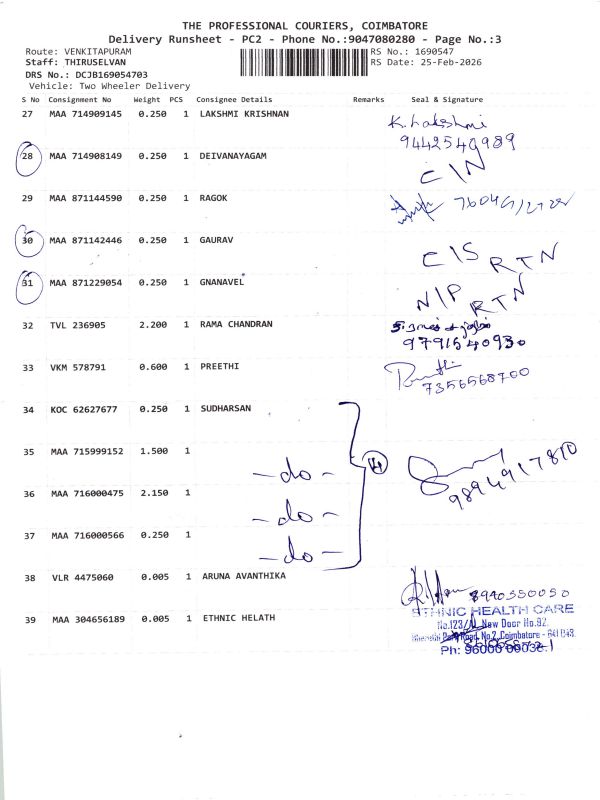 THE PROFESSIONAL COURIERS, COIMBATORE
Delivery Runsheet - PC2 - Phone No.:9047080280 - Page No.:3
Route: VENKITAPURAM RS No.: 1690547
Staff: THIRUSELVAN RS Date: 25-Feb-2026
DRS No.: DCJB169054703
Vehicle: Two Wheeler Delivery
S No Consignment No Weight PCS Consignee Details Remarks Seal & Signature
27 MAA 714909145 0.250 1 LAKSHMI KRISHNAN K. Lakshmi
9442540989
28 MAA 714908149 0.250 1 DEIVANAYAGAM C/N
29 MAA 871144590 0.250 1 RAGOK
30 MAA 871142446 0.250 1 GAURAV C/S RTN
31 MAA 871229054 0.250 1 GNANAVEL N/P RTN
32 TVL 236905 2.200 1 RAMA CHANDRAN
9791540930
33 VKM 578791 0.600 1 PREETHI
7356568700
34 KOC 62627677 0.250 1 SUDHARSAN
35 MAA 715999152 1.500 1 -do- 4
9894917810
36 MAA 716000475 2.150 1 -do-
37 MAA 716000566 0.250 1 -do-
38 VLR 4475060 0.005 1 ARUNA AVANTHIKA
8940550050
39 MAA 304656189 0.005 1 ETHNIC HELATH
ETHNIC HEALTH CARE
No.123/ New Door No.92,
Road, No.2, Coimbatore -
Ph: 96000